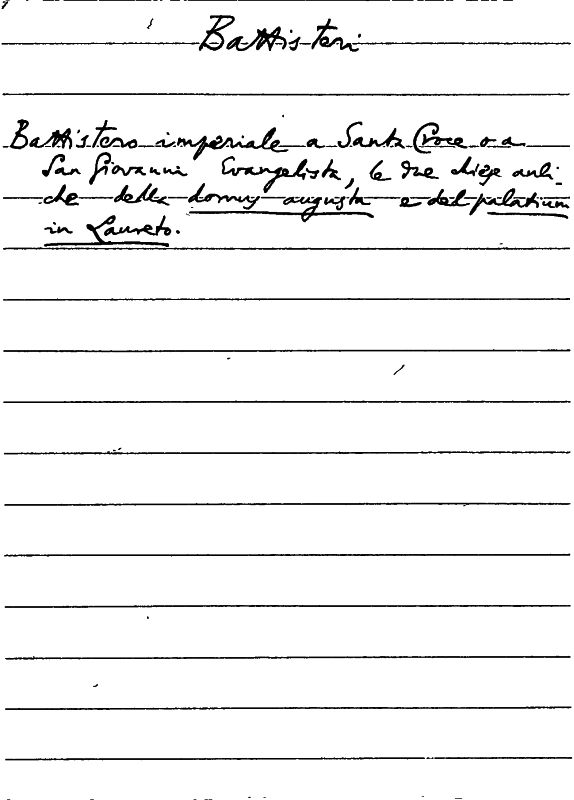 Battisteri
Battistero imperiale a Santa Croce o a
San Giovanni Evangelista, le due chiese anti-
che della domus augusta e del palatium
in Laureto.